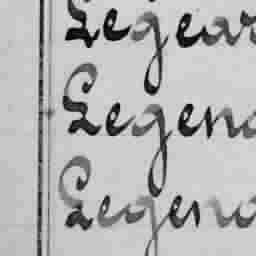 Legear
Legend
Legend